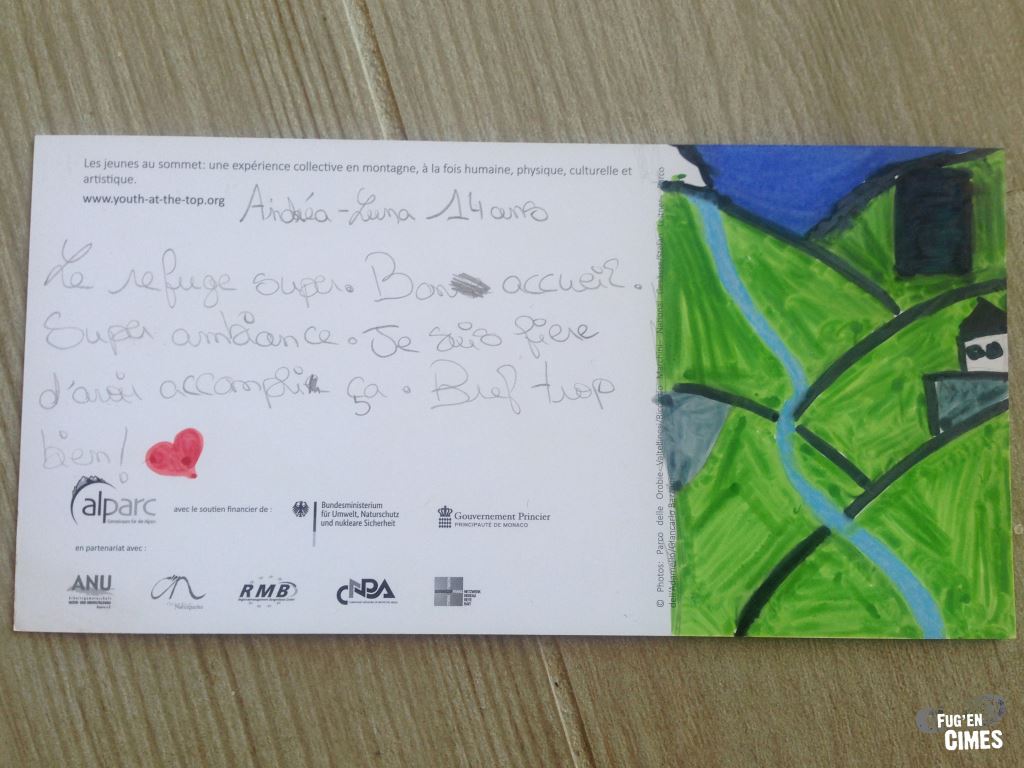 Les jeunes au sommet: une expérience collective en montagne, à la fois humaine, physique, culturelle et
artistique.
www.youth-at-the-top.org
Andréa-Luna 14 ans
Le refuge super. Bon accueil.
Super ambiance. Je suis fière
d'avoir accompli ça. Bref trop
bien!
alparc
avec le soutien financier de :
Bundesministerium
für Umwelt, Naturschutz
und nukleare Sicherheit
Gouvernement Princier
PRINCIPAUTÉ DE MONACO
en partenariat avec :
ANU
RMB
CNPA
© Photos: Parco delle Orobie Valtellinesi
FUG'EN
CIMES